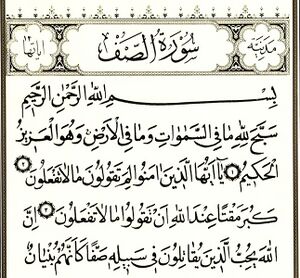 مدنية سورة الصف آياتها ١٤
بسم الله الرحمن الرحيم
سَبَّحَ لِلّٰهِ مَا فِي السَّمٰوَاتِ وَمَا فِي الْاَرْضِ وَهُوَ الْعَزِيزُ
الْحَكِيمُ ١ يَآ اَيُّهَا الَّذِينَ اٰمَنُوا لِمَ تَقُولُونَ مَا لَا تَفْعَلُونَ ٢
كَبُرَ مَقْتًا عِنْدَ اللّٰهِ اَنْ تَقُولُوا مَا لَا تَفْعَلُونَ ٣ اِنَّ
اللّٰهَ يُحِبُّ الَّذِينَ يُقَاتِلُونَ فِي سَبِيلِهِ صَفًّا كَاَنَّهُمْ بُنْيَانٌ